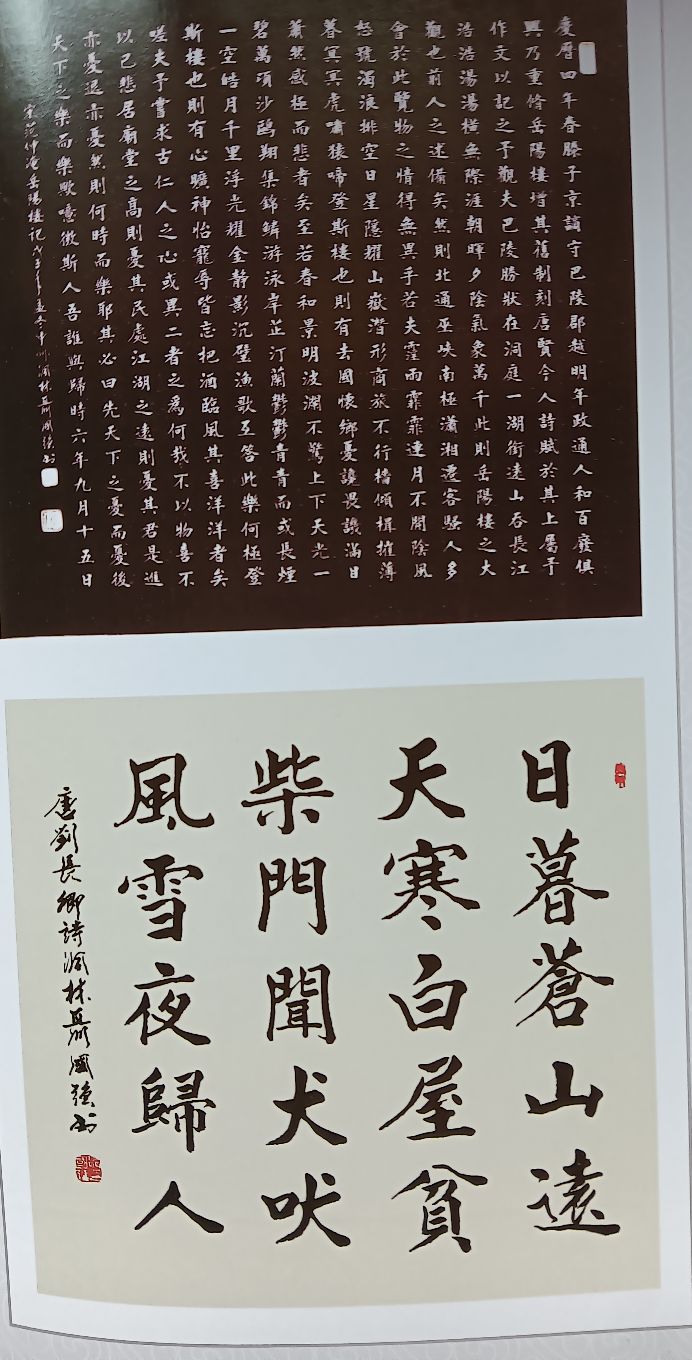 慶曆四年春滕子京謫守巴陵郡越明年政通人和百廢俱
興乃重脩岳陽樓增其舊制刻唐賢今人詩賦於其上屬予
作文以記之予觀夫巴陵勝狀在洞庭一湖銜遠山吞長江
浩浩湯湯橫無際涯朝暉夕陰氣象萬千此則岳陽樓之大
觀也前人之述備矣然則北通巫峽南極瀟湘遷客騷人多
會於此覽物之情得無異乎若夫霪雨霏霏連月不開陰風
怒號濁浪排空日星隱耀山嶽潛形商旅不行檣傾楫摧薄
暮冥冥虎嘯猿啼登斯樓也則有去國懷鄉憂讒畏譏滿目
蕭然感極而悲者矣至若春和景明波瀾不驚上下天光一
碧萬頃沙鷗翔集錦鱗游泳岸芷汀蘭鬱鬱青青而或長煙
一空皓月千里浮光耀金靜影沉璧漁歌互答此樂何極登
斯樓也則有心曠神怡寵辱皆忘把酒臨風其喜洋洋者矣
嗟夫予嘗求古仁人之心或異二者之為何哉不以物喜不
以己悲居廟堂之高則憂其民處江湖之遠則憂其君是進
亦憂退亦憂然則何時而樂耶其必曰先天下之憂而憂後
天下之樂而樂歟噫微斯人吾誰與歸時六年九月十五日
宋范仲淹岳陽樓記戊子年夏林聶國強書
日暮蒼山遠
天寒白屋貧
柴門聞犬吠
風雪夜歸人
唐劉長卿詩林聶國強書